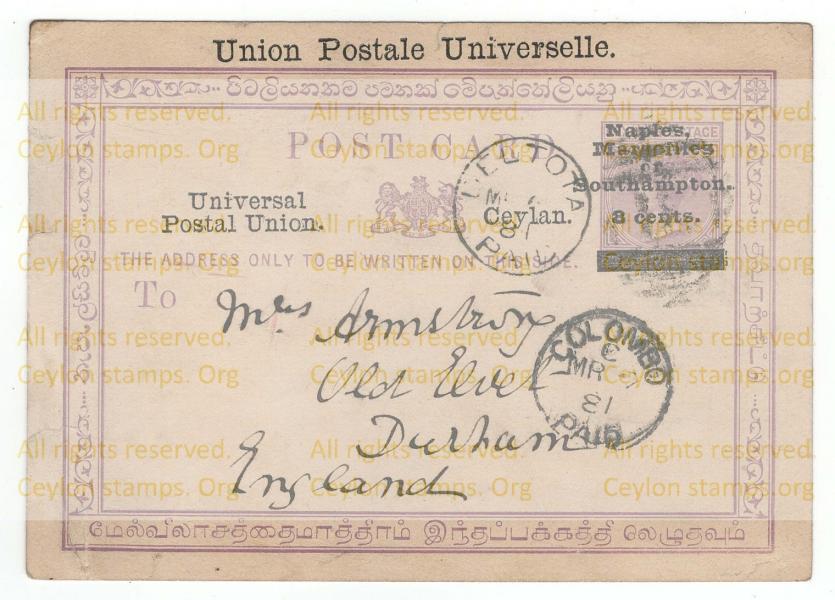 Union Postale Universelle.
POST CARD
Naples,
Marseilles
or
Southampton.
8 cents.
Universal
Postal Union.
Ceylan.
THE ADDRESS ONLY TO BE WRITTEN ON THIS SIDE.
To
Mrs Armstrong
Old Elvet
Durham
England
BENTOTA
81
PAID
COLOMBO
MR
81
PAID
மேல்விலாசத்தைமாத்திரம் இந்தப்பக்கத்தி லெழுதவும்
All rights reserved.
Ceylon stamps. Org
All rights reserved.
Ceylon stamps. Org
All rights reserved.
Ceylon stamps. Org
All rights reserved.
Ceylon stamps. Org
All rights reserved.
Ceylon stamps. Org
All rights reserved.
Ceylon stamps. Org
All rights reserved.
Ceylon stamps. Org
All rights reserved.
Ceylon stamps. Org
All rights reserved.
Ceylon stamps. Org
All rights reserved.
Ceylon stamps. Org
All rights reserved.
Ceylon stamps. Org
All rights reserved.
Ceylon stamps. Org